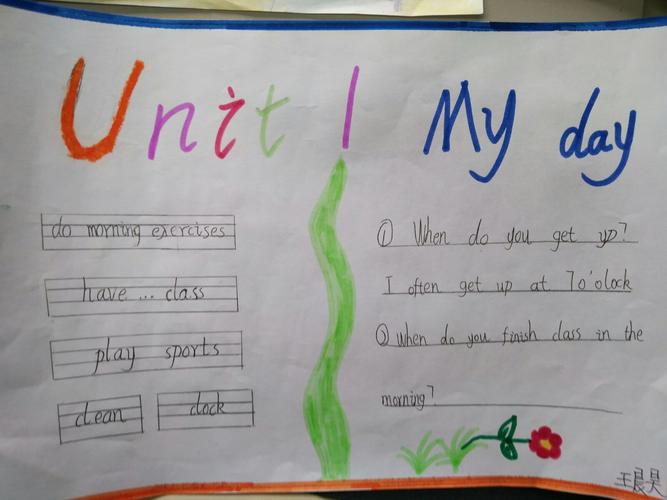 Unit 1 My day
do morning exercises
have ... class
play sports
clean clock
① When do you get yp?
I often get up at 7o'olock
② When do you finish class in the
morning?
王晨昊